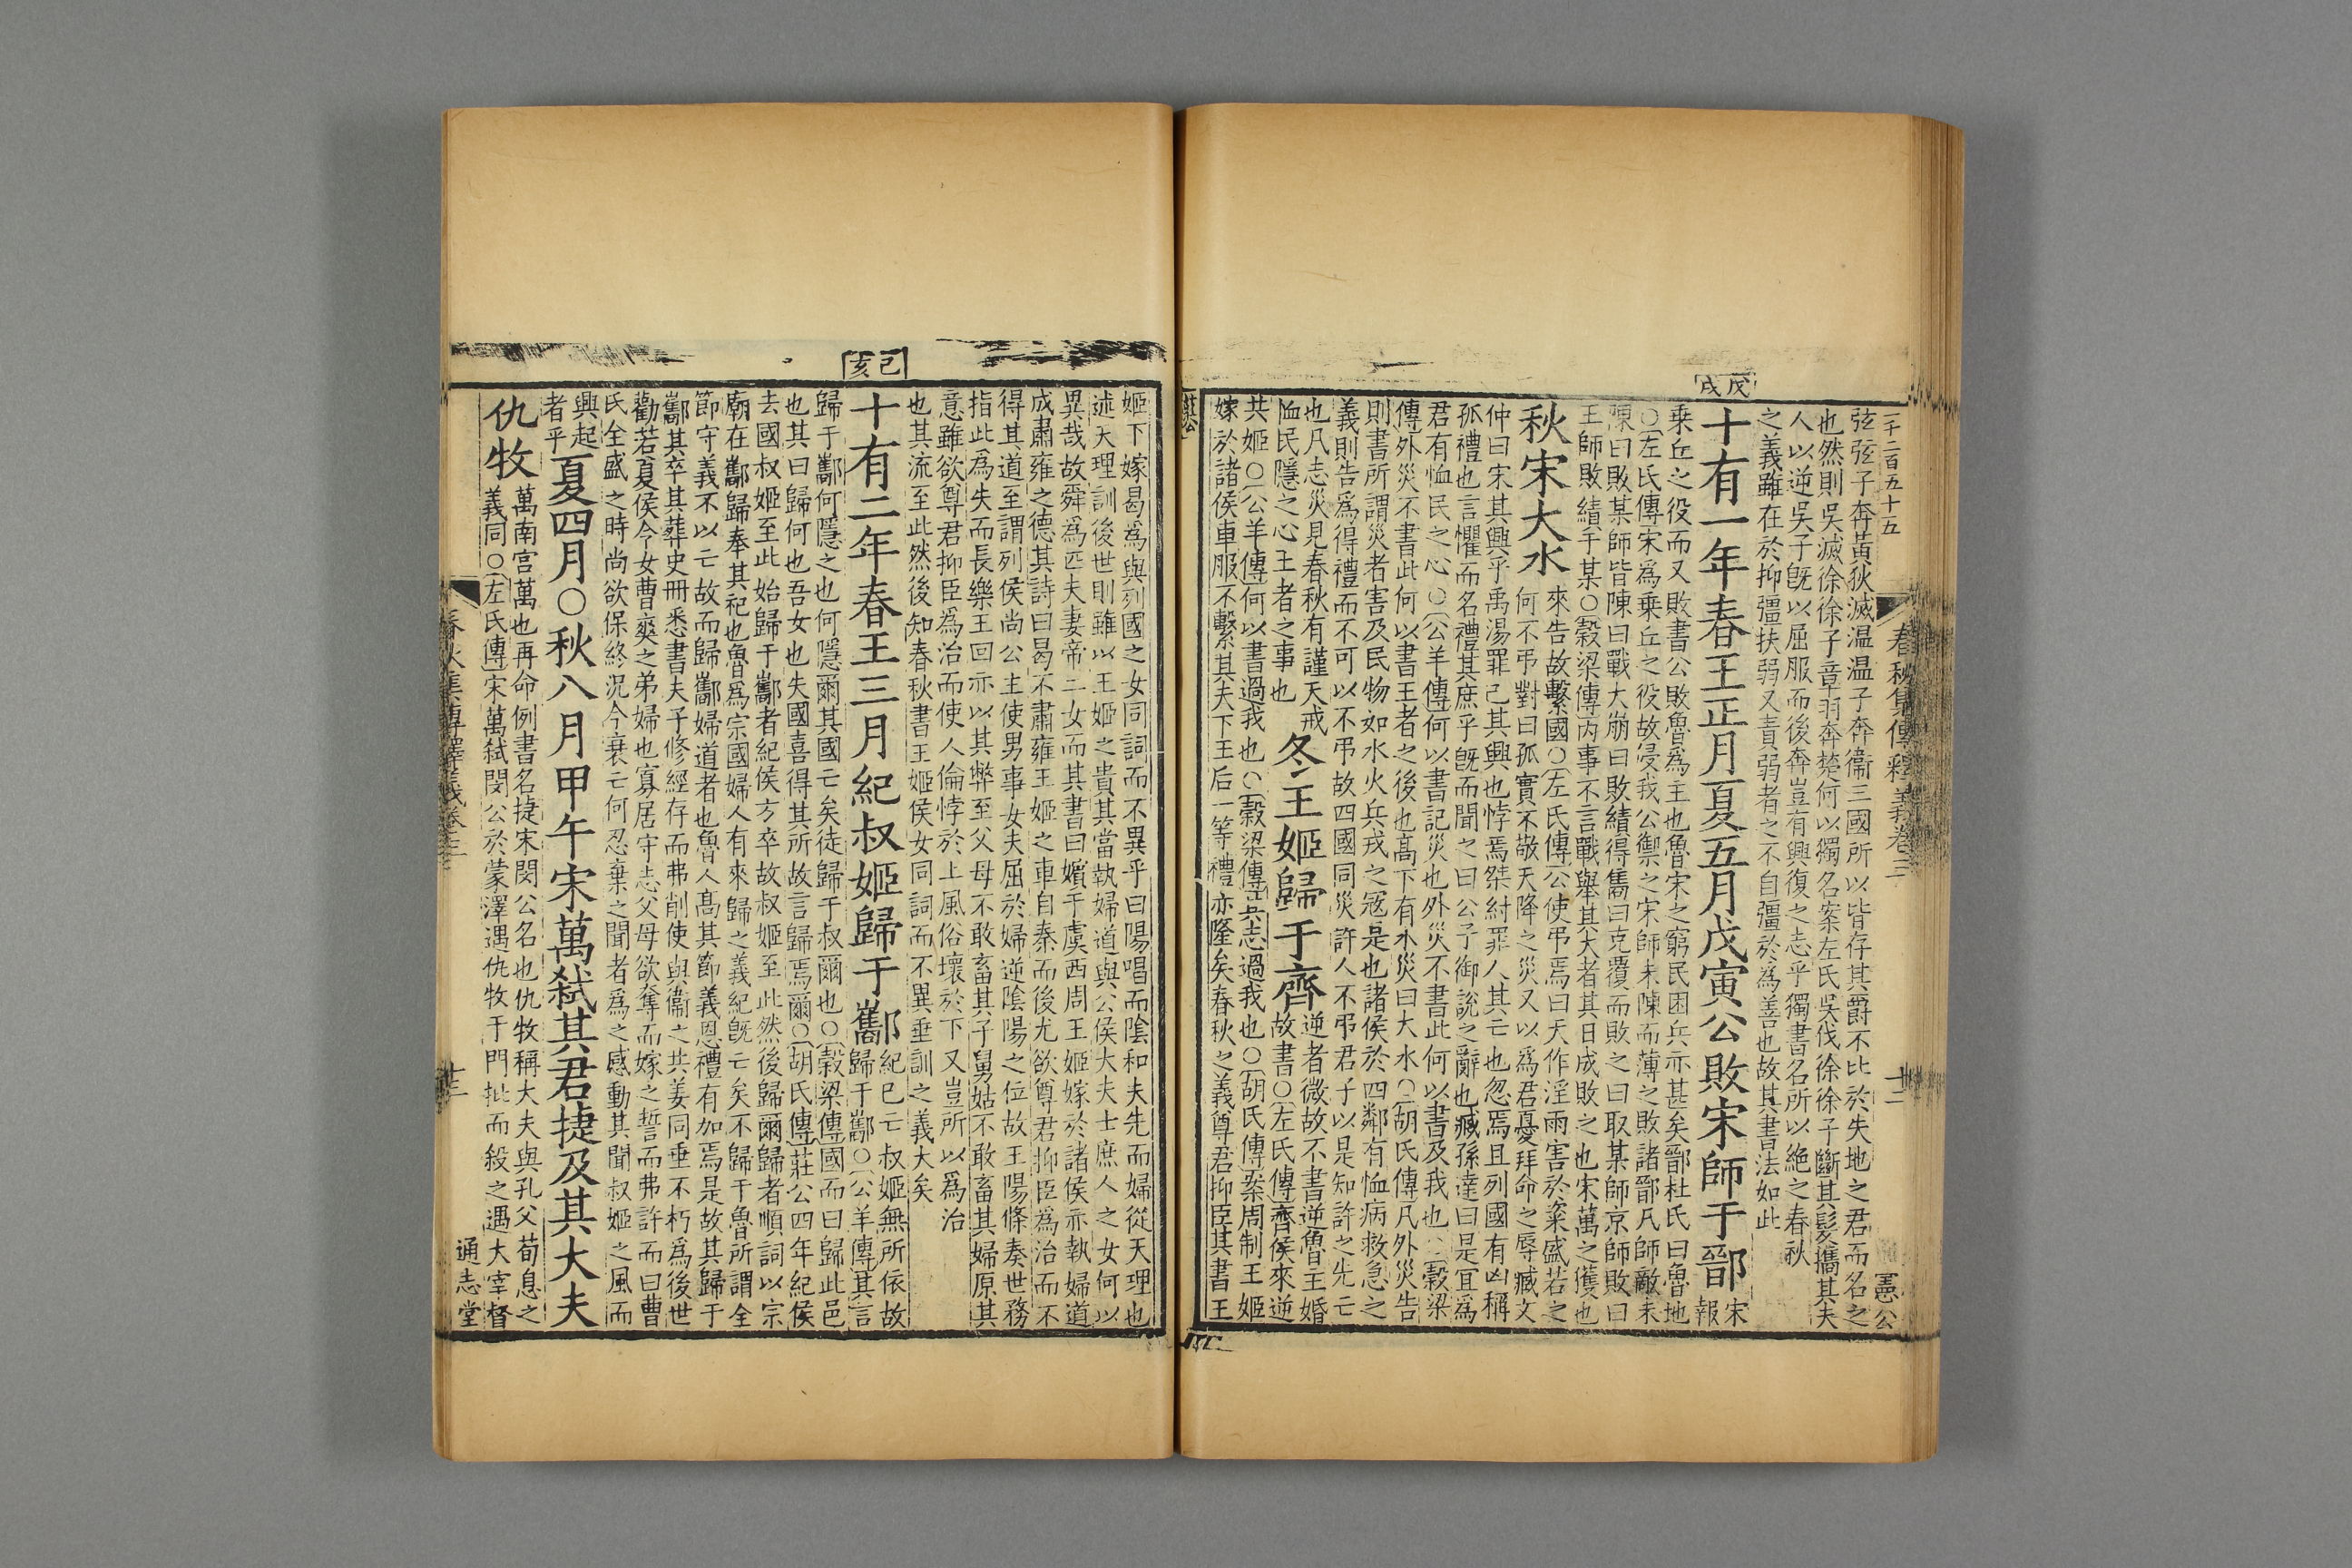 一千二百五十五
春秋集傳釋義卷三
十二
憲公
戊戌
弦弦子奔黃狄滅温温子奔衞三國所以皆存其爵不比於失地之君而名之
也然則吳滅徐徐子章羽奔楚何以獨名案左氏吳伐徐徐子斷其髮攜其夫
人以逆吳子旣以屈服而後奔豈有興復之志乎獨書名所以絶之春秋
之義雖在於抑彊扶弱又責弱者之不自彊於為善也故其書法如此
十有一年春王正月夏五月戊寅公敗宋師于鄑
宋
報
乗丘之役而又敗書公敗魯為主也魯宋之窮民困兵亦甚矣鄑杜氏曰魯地
○左氏傳宋爲乗丘之役故侵我公禦之宋師未陳而薄之敗諸鄑凡師敵未
陳曰敗某師皆陳曰戰大崩曰敗績得儁曰克覆而敗之曰取某師京師敗曰
王師敗績于某○榖梁傳內事不言戰舉其大者其日成敗之也宋萬之獲也
秋宋大水
來告故繫國○左氏傳公使弔焉曰天作淫雨害於粢盛若之
何不弔對曰孤實不敬天降之災又以爲君憂拜命之辱臧文
仲曰宋其興乎禹湯罪己其興也悖焉桀紂罪人其亡也忽焉且列國有凶稱
孤禮也言懼而名禮其庶乎旣而聞之曰公子御說之辭也臧孫達曰是宜爲
君有恤民之心○公羊傳何以書記災也外災不書此何以書及我也○榖梁
傳外災不書此何以書王者之後也高下有水災曰大水○胡氏傳凡外災告
則書所謂災者害及民物如水火兵戎之冦是也諸侯於四鄰有恤病救急之
義則告爲得禮而不可以不弔故四國同災許人不弔君子以是知許之先亡
也凡志災見春秋有謹天戒
恤民隱之心王者之事也
冬王姬歸于齊
逆者微故不書逆魯主婚
故書○左氏傳齊侯來逆
共姬○公羊傳何以書過我也○榖梁傳其志過我也○胡氏傳案周制王姬
嫁於諸侯車服不繫其夫下王后一等禮亦隆矣春秋之義尊君抑臣其書王
莊公
己亥
姬下嫁曷爲與列國之女同詞而不異乎曰陽唱而陰和夫先而婦從天理也
述天理訓後世則雖以王姬之貴其當執婦道與公侯大夫士庶人之女何以
異哉故舜爲匹夫妻帝二女而其書曰嬪于虞西周王姬嫁於諸侯亦執婦道
成肅雍之德其詩曰曷不肅雍王姬之車自秦而後尤欲尊君抑臣爲治而不
得其道至謂列侯尚公主使男事女夫屈於婦逆陰陽之位故王陽條奏世務
指此爲失而長樂王回亦以其弊至父母不敢畜其子舅姑不敢畜其婦原其
意雖欲尊君抑臣爲治而使人倫悖於上風俗壞於下又豈所以爲治
也其流至此然後知春秋書王姬侯女同詞而不異垂訓之義大矣
十有二年春王三月紀叔姬歸于酅
紀已亡叔姬無所依故
歸于酅○公羊傳其言
歸于酅何隱之也何隱爾其國亡矣徒歸于叔爾也○榖梁傳國而曰歸此邑
也其曰歸何也吾女也失國喜得其所故言歸焉爾○胡氏傳莊公四年紀侯
去國叔姬至此始歸于酅者紀侯方卒故叔姬至此然後歸爾歸者順詞以宗
廟在酅歸奉其祀也魯爲宗國婦人有來歸之義紀旣亡矣不歸于魯所謂全
節守義不以亡故而歸酅婦道者也魯人高其節義恩禮有加焉是故其歸于
酅其卒其葬史冊悉書夫子修經存而弗削使與衞之共姜同垂不朽爲後世
勸若夏侯令女曹爽之弟婦也寡居守志父母欲奪而嫁之誓而弗許而曰曹
氏全盛之時尚欲保終況今衰亡何忍棄之聞者爲之感動其聞叔姬之風而
興起
者乎
夏四月○秋八月甲午宋萬弑其君捷及其大夫
仇牧
萬南宮萬也再命例書名捷宋閔公名也仇牧稱大夫與孔父荀息之
義同○左氏傳宋萬弑閔公於蒙澤遇仇牧于門批而殺之遇大宰督
春秋集傳釋義卷三
十三
通志堂